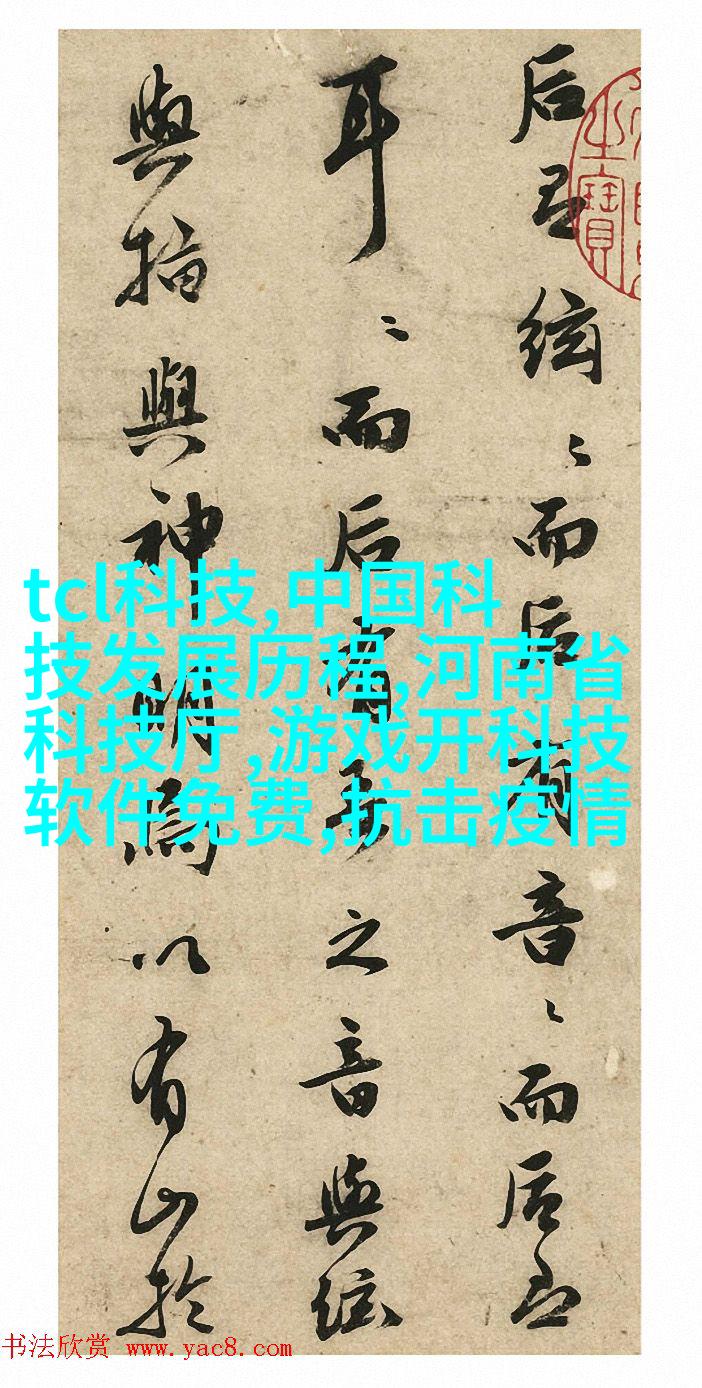 后絃〻而后有音〻而后
耳〻而后有之音與絃
與指與神明焉以有山於
之寶
tcl科技,中国科
技发展历程,河南省
科技厅,游戏开科技
软件免费,抗击疫情
书法欣赏 www.yac8.com